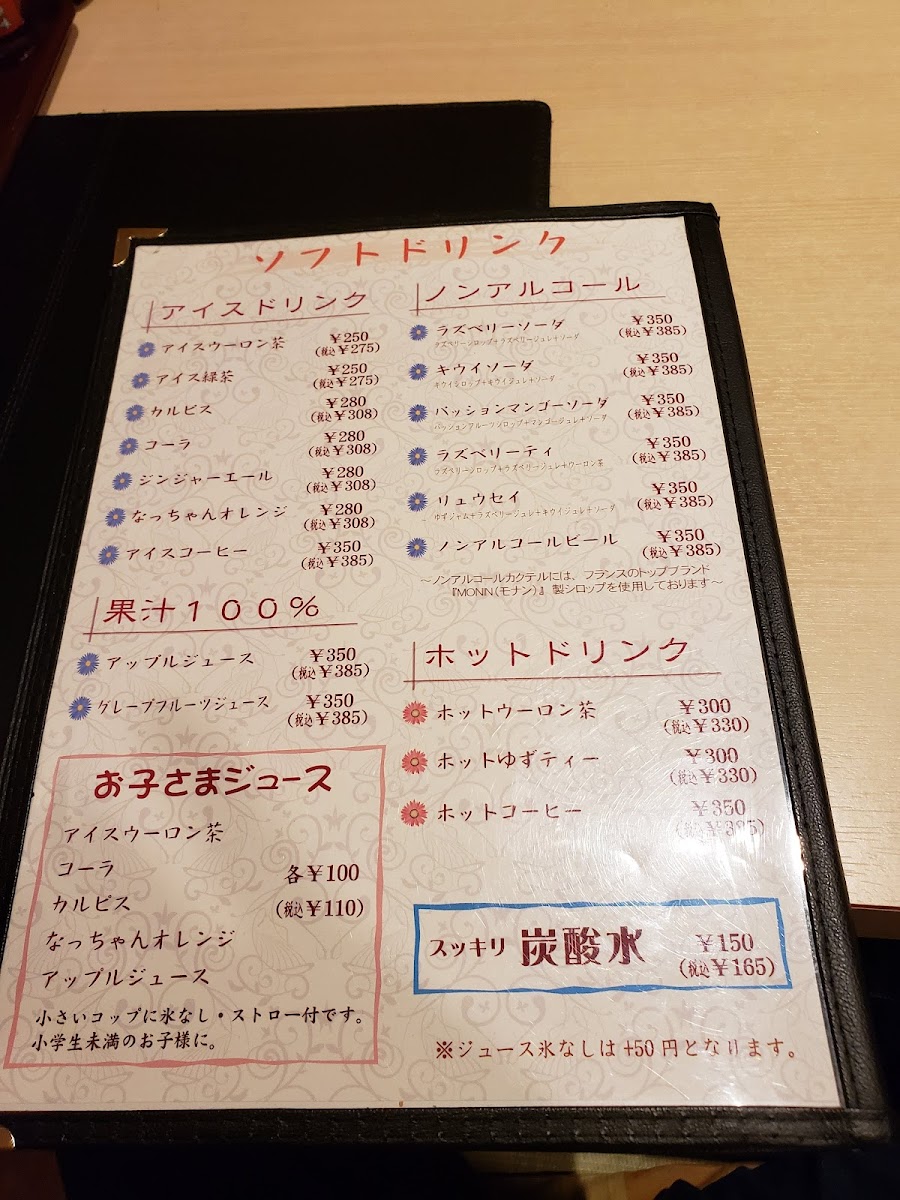 ソフトドリンク
アイスドリンク
アイスウーロン茶 ¥250
(税込¥275)
アイス緑茶 ¥250
(税込¥275)
カルピス ¥280
(税込¥308)
コーラ ¥280
(税込¥308)
ジンジャーエール ¥280
(税込¥308)
なっちゃんオレンジ ¥280
(税込¥308)
アイスコーヒー ¥350
(税込¥385)
果汁100%
アップルジュース ¥350
(税込¥385)
グレープフルーツジュース ¥350
(税込¥385)
お子さまジュース
アイスウーロン茶
コーラ 各¥100
カルピス (税込¥110)
なっちゃんオレンジ
アップルジュース
小さいコップに氷なし・ストロー付です。
小学生未満のお子様に。
ノンアルコール
ラズベリーソーダ ¥350
(税込¥385)
ラズベリーシロップ+ラズベリージュレ+ソーダ
キウイソーダ ¥350
(税込¥385)
キウイシロップ+キウイジュレ+ソーダ
パッションマンゴーソーダ ¥350
(税込¥385)
パッションフルーツシロップ+マンゴージュレ+ソーダ
ラズベリーティ ¥350
(税込¥385)
ラズベリーシロップ+ラズベリージュレ+ウーロン茶
リュウセイ ¥350
(税込¥385)
ゆずジャム+ラズベリージュレ+キウイジュレ+ソーダ
ノンアルコールビール ¥350
(税込¥385)
～ノンアルコールカクテルには、フランスのトップブランド
『MONN(モナン)』製シロップを使用しております～
ホットドリンク
ホットウーロン茶 ¥300
(税込¥330)
ホットゆずティー ¥300
(税込¥330)
ホットコーヒー ¥350
(税込¥385)
スッキリ 炭酸水 ¥150
(税込¥165)
※ジュース氷なしは+50円となります。